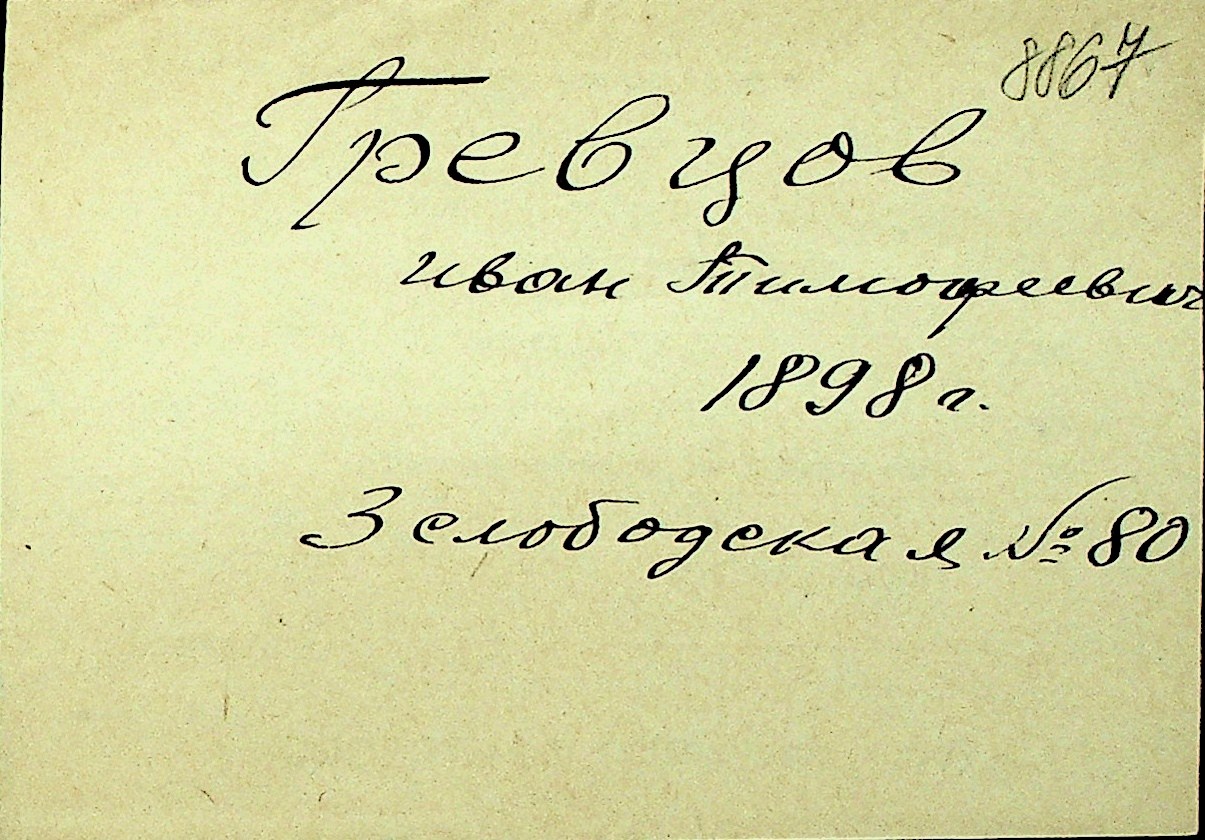 8867
Гревцов
иван Тимофеевич
1898 г.
3 слободская № 80